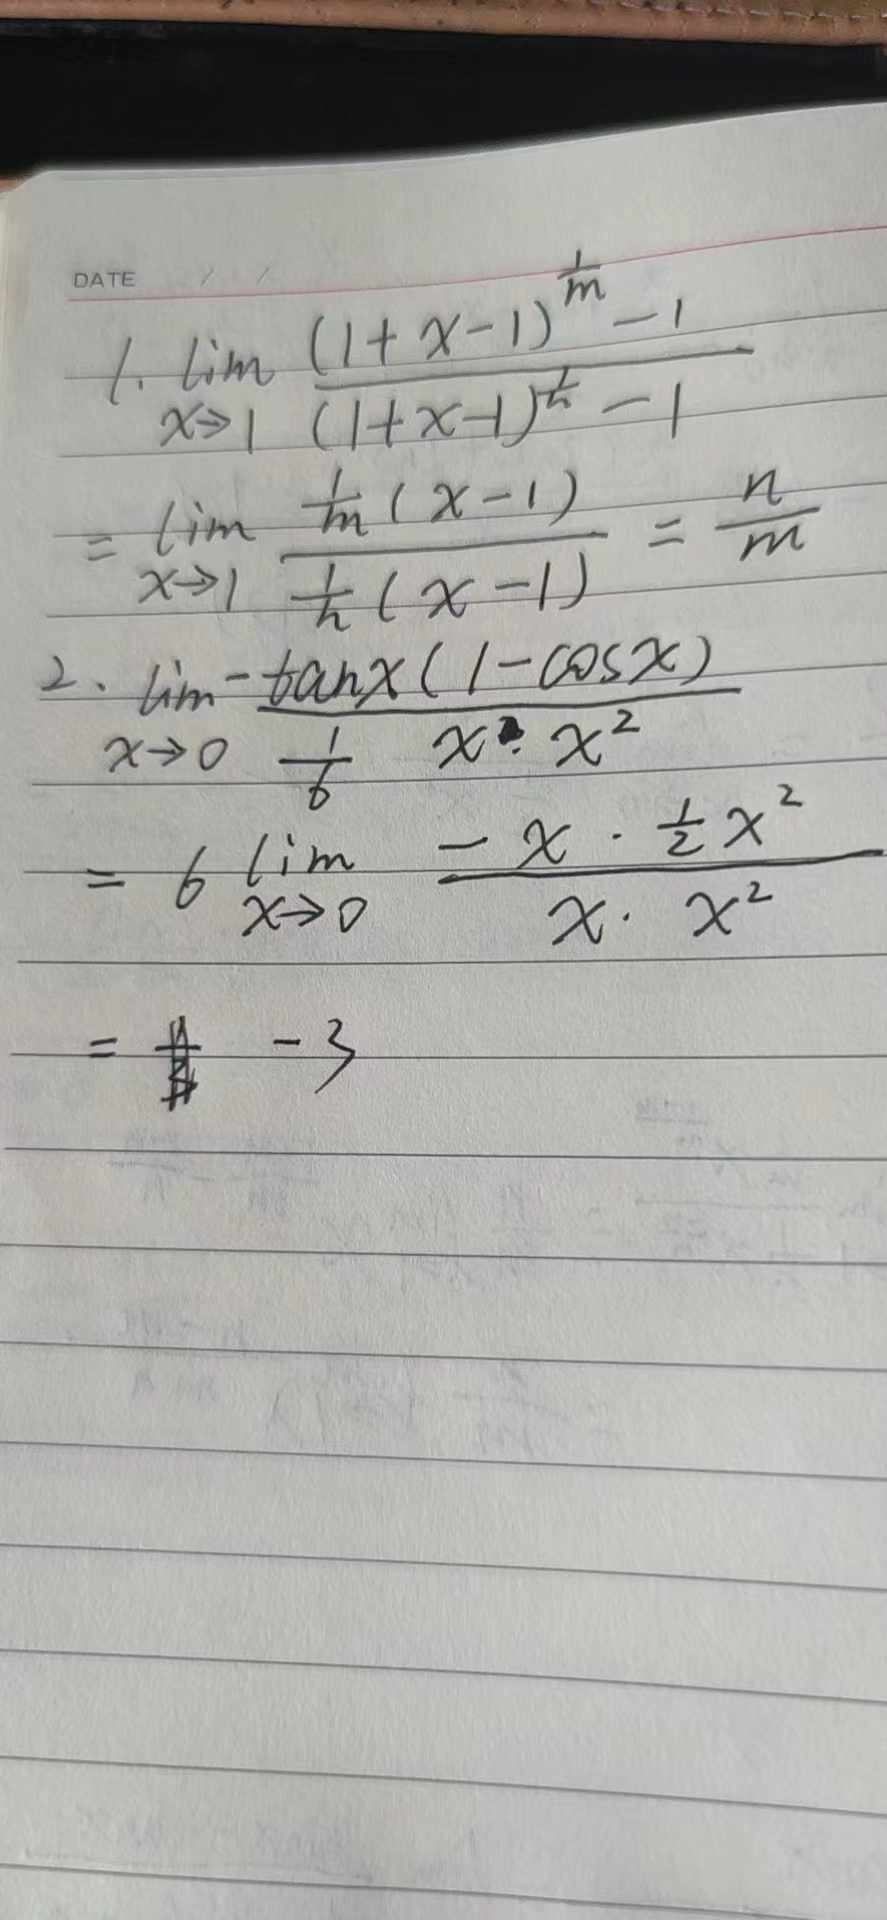 DATE / /
1. lim x→1 ((1+x-1)^(1/m) - 1)/((1+x-1)^(1/n) - 1)
= lim x→1 (1/m (x-1))/(1/n (x-1)) = n/m
2. lim x→0 (-tanx(1-cosx))/(1/6 x · x²)
= 6 lim x→0 (-x · 1/2 x²)/(x · x²)
= -3